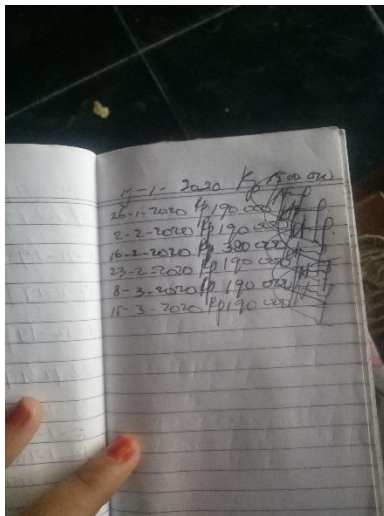 -1-2020 Rp 1500 000
26-1-2020 Rp 190 000
2-2-2020 Rp 190 000
16-2-2020 Rp 380 000
23-2-2020 Rp 190 000
8-3-2020 Rp 190 000
15-3-2020 Rp 190 000